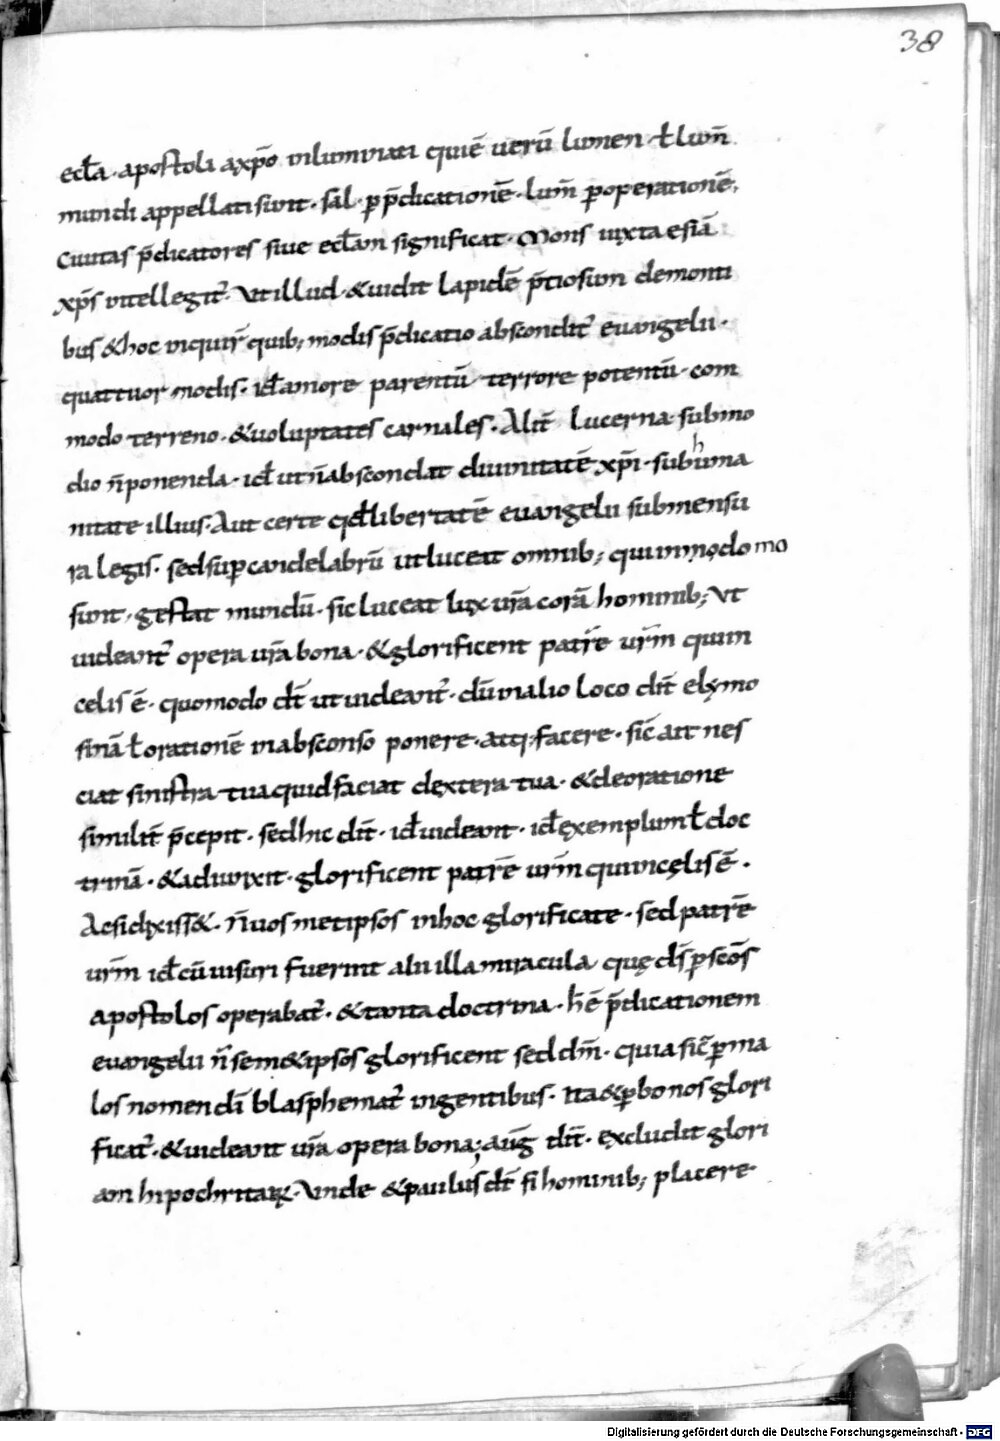 38
eccła· apostoli a xp̄o inluminati qui ē uerū lumen· ł lum̄
mundi appellati sunt· sal· p p̄dicationē· lum̄ p operationē,
Ciuitas p̄dicatores siue eccłam significat· Mons iuxta esiā
xp̄s intellegit᷑· Ut illud· & uidit lapidē p̄tiosum de monti
bus & hoc inquir̄ quib; modis p̄dicatio abscondit᷑ euangelii·
quattuor modis· id amore parentū terrore potentū· com
modo terreno· & uoluptates carnales· Alit̄ lucerna sub mo
dio n̄ ponenda· id ut n̄ abscondat diuinitatē xp̄i· sub huma
nitate illius· Aut certe qd libertatē euangelii sub mensu
ra legis· sed sup candelabrū ut luceat omnib; qui in modo mo
sunt, gestat mundū· sic luceat lux ur̄a corā hominib; Ut
uideant᷑ opera ur̄a bona· & glorificent patrē urm̄ qui in
celis ē· quomodo dt̄ ut uideant᷑· dū in alio loco dit̄ elymo
sinā ł orationē in absconso ponere· atq; facere· sic̄ ait nes
ciat sinistra tua quid faciat dextera tua· & de oratione
similit̄ p̄cepit· sed hic dit̄· id uideant· id exemplum ł doc
trinā· & adiunxit· glorificent patrē urm̄ qui in cęlis ē·
Ac si dixiss&· n̄ uos metipsos in hoc glorificate· sed patrē
urm̄ id cū uisuri fuerint alii illa miracula quę ds̄ p scōs
apostolos operabat᷑· & tanta doctrina· h̄ ē p̄dicationem
euangelii n̄ sem& ipsos glorificent sed dm̄· quia sic̄ p ma
los nomen dī blasphemat᷑ in gentibus· Ita & p bonos glori
ficat᷑· & uideant ur̄a opera bona; auḡ dit̄· excludit glori
am hipochritarū· Unde & paulus dt̄ si hominib; placere·
Digitalisierung gefördert durch die Deutsche Forschungsgemeinschaft - DFG